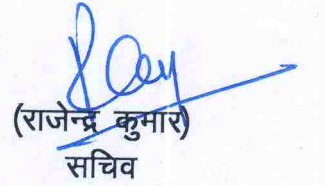 (राजेन्द्र कुमार)
सचिव